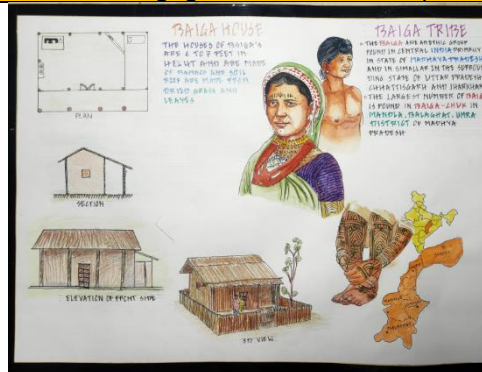 BAIGA HOUSE
THE HOUSES OF BAIGA'S
ARE 6 TO 7 FEET IN
AND ARE MADE
OF BAMBOO AND SOIL
ROOF ARE MADE FROM
DRIED GRASS AND
LEAVES
PLAN
SECTION
ELEVATION OF FRONT SIDE
3D VIEW
BAIGA TRIBE
THE BAIGA ARE ETHIC GROUP
FOUND IN CENTRAL INDIA PRIMARLY
IN STATE OF MADHYA PRADESH
AND IN SIMALLAR IN THE SURROUN
DING STATE OF UTTAR PRADESH
CHHATTISGARH AND JHARKHAND
THE LARGEST NUMBER OF BAIGA
IS FOUND IN BAIGA-CHUK IN
MANDLA, BALAGHAT, UMRA
DISTRICT OF MADHYA
PRADESH